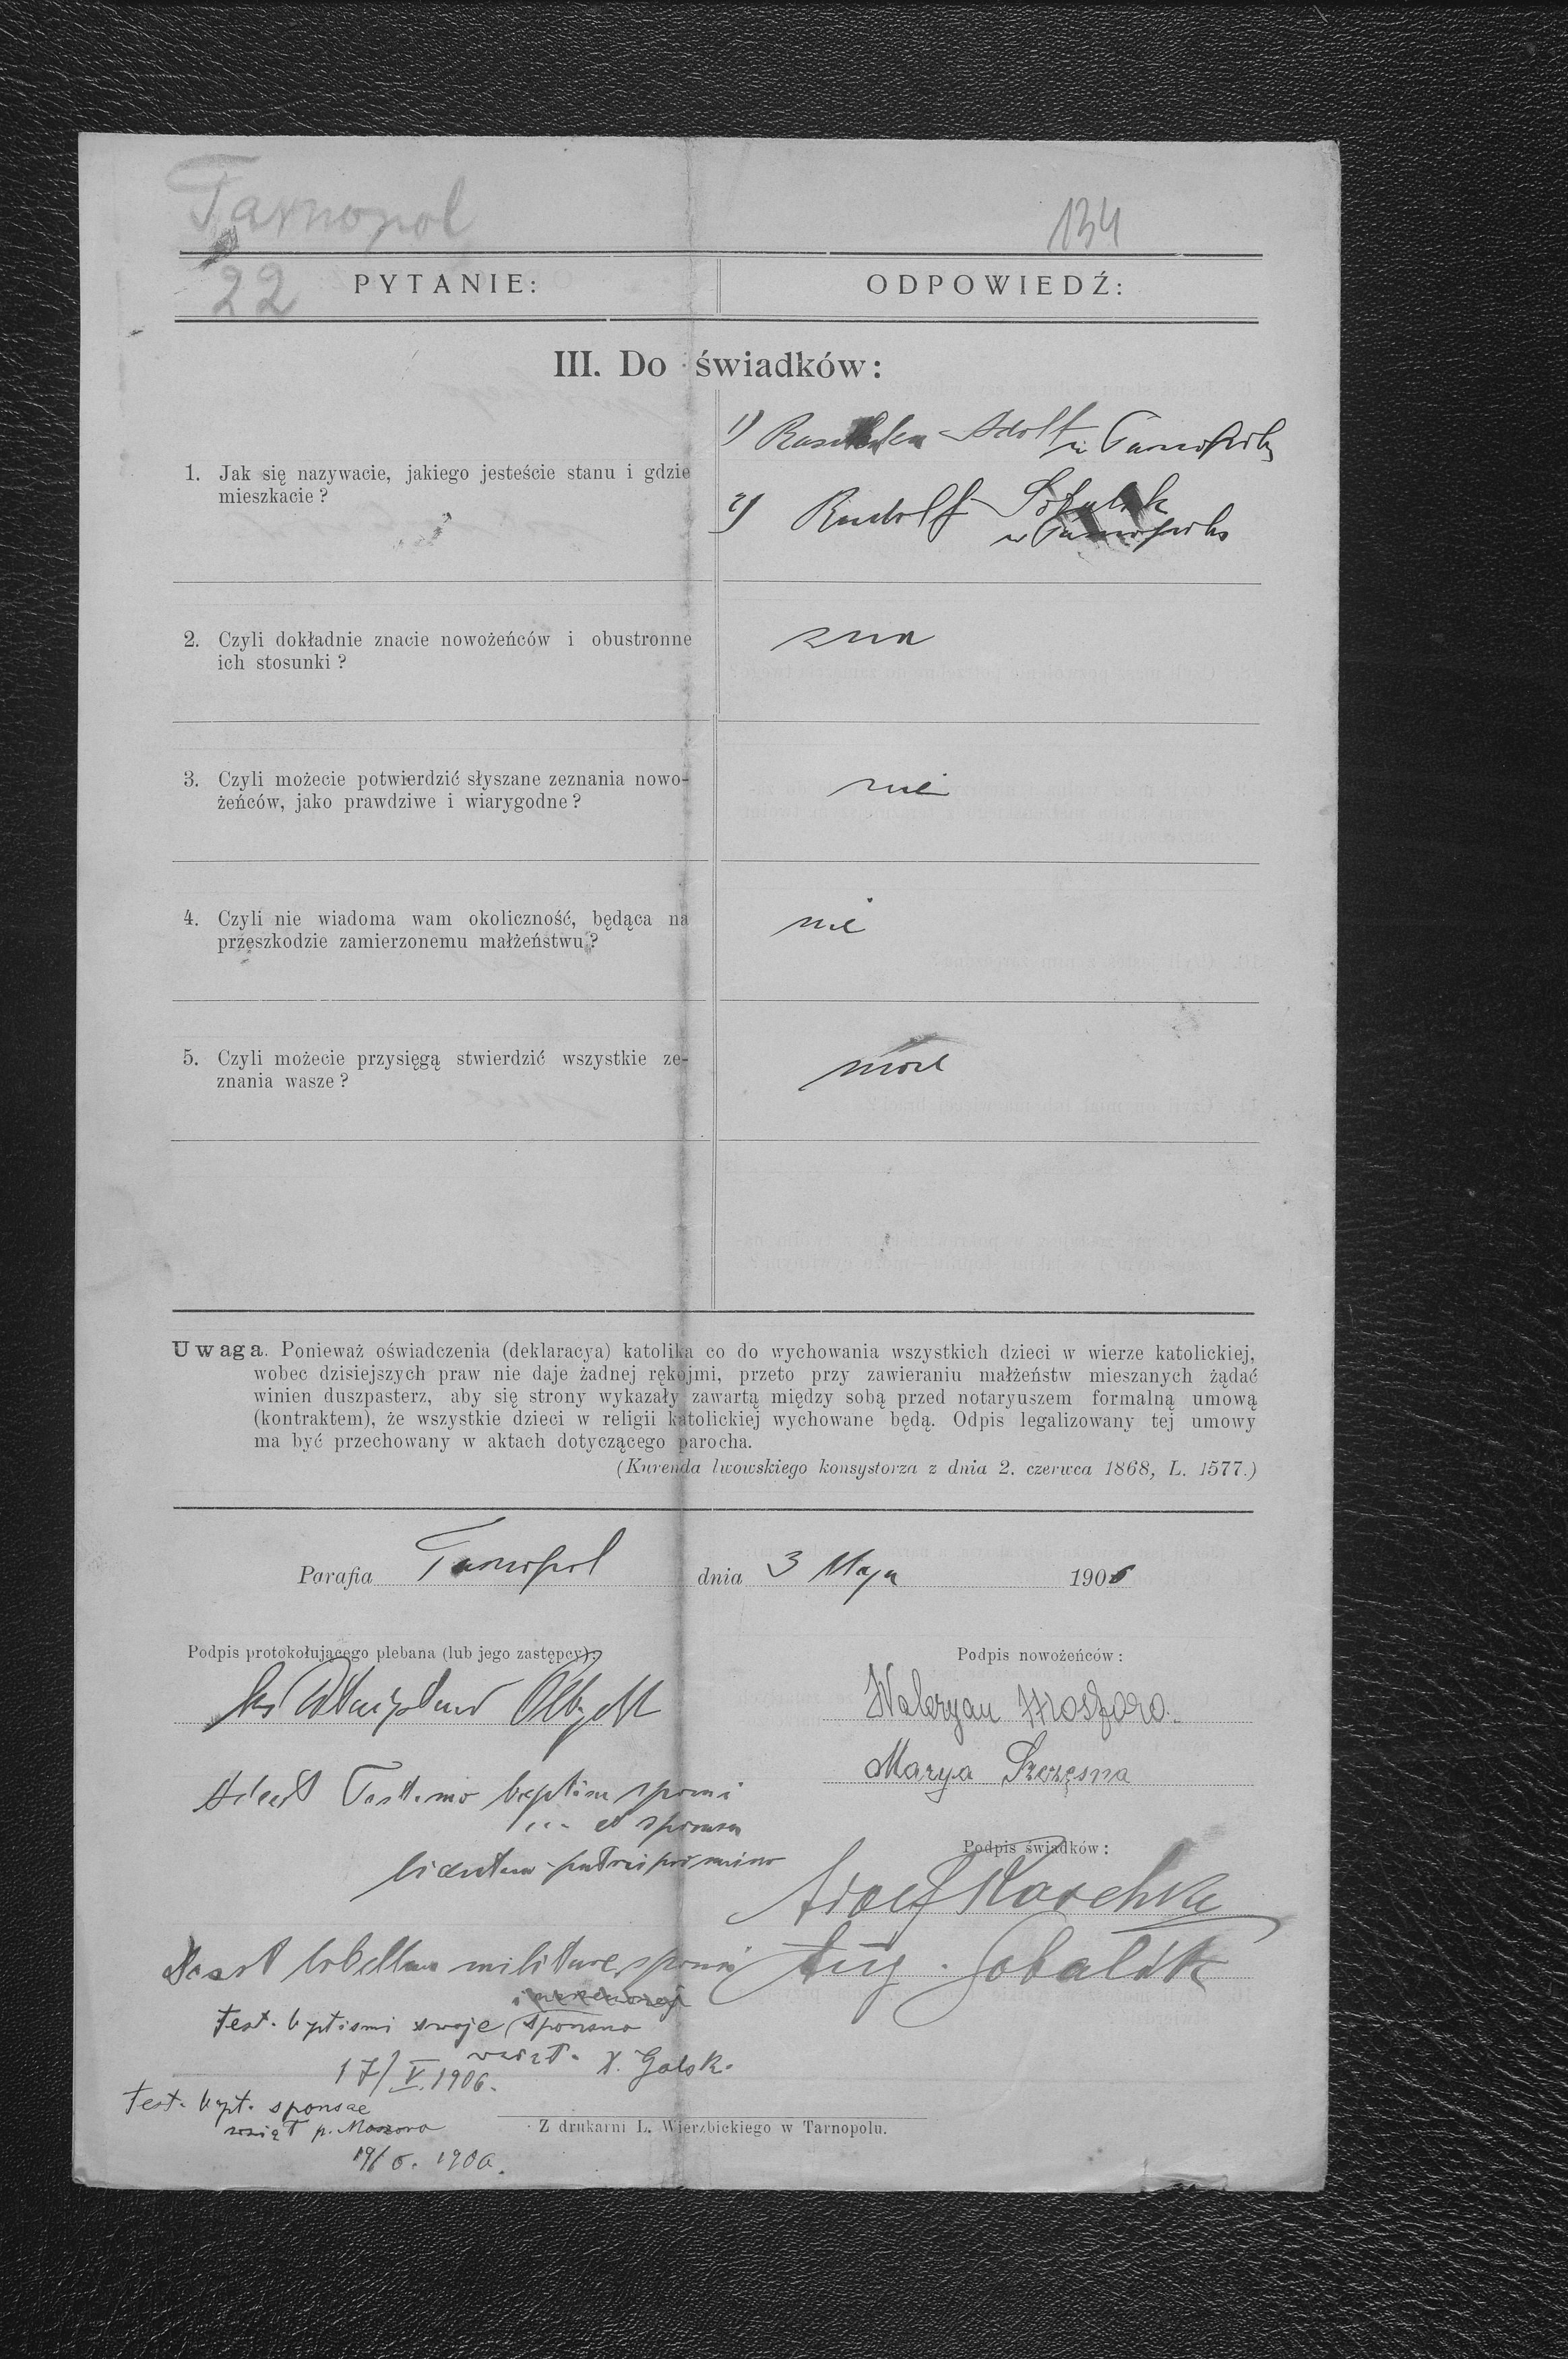 Tarnopol
134
22
PYTANIE:
ODPOWIEDŹ:
III. Do świadków:
1. Jak się nazywacie, jakiego jesteście stanu i gdzie
mieszkacie?
1) Adolf w Tarnopolu
2) Rudolf Sobalik
w Tarnopolu
2. Czyli dokładnie znacie nowożeńców i obustronne
ich stosunki?
zna
3. Czyli możecie potwierdzić słyszane zeznania nowo-
żeńców, jako prawdziwe i wiarygodne?
nie
4. Czyli nie wiadoma wam okoliczność, będąca na
przeszkodzie zamierzonemu małżeństwu?
nie
5. Czyli możecie przysięgą stwierdzić wszystkie ze-
znania wasze?
może
Uwaga. Ponieważ oświadczenia (deklaracya) katolika co do wychowania wszystkich dzieci w wierze katolickiej,
wobec dzisiejszych praw nie daje żadnej rękojmi, przeto przy zawieraniu małżeństw mieszanych żądać
winien duszpasterz, aby się strony wykazały zawartą między sobą przed notaryuszem formalną umową
(kontraktem), że wszystkie dzieci w religii katolickiej wychowane będą. Odpis legalizowany tej umowy
ma być przechowany w aktach dotyczącego parocha.
(Kurenda lwowskiego konsystorza z dnia 2. czerwca 1868, L. 1577.)
Parafia Tarnopol dnia 3 Maja 1906
Podpis protokołującego plebana (lub jego zastępcy):
Podpis nowożeńców:
Ks Władysław
Waleryan
Marya Szczęsna
Adest baptism sponsi
et sponsae
Podpis świadków:
Adolf
Aug. Sobalik
militare sponsi
test. baptismi swoje sponsus
wziął. X. Galsk.
17/V. 1906.
test. bapt. sponsae
wziął p.
19/6. 1906.
Z drukarni L. Wierzbickiego w Tarnopolu.